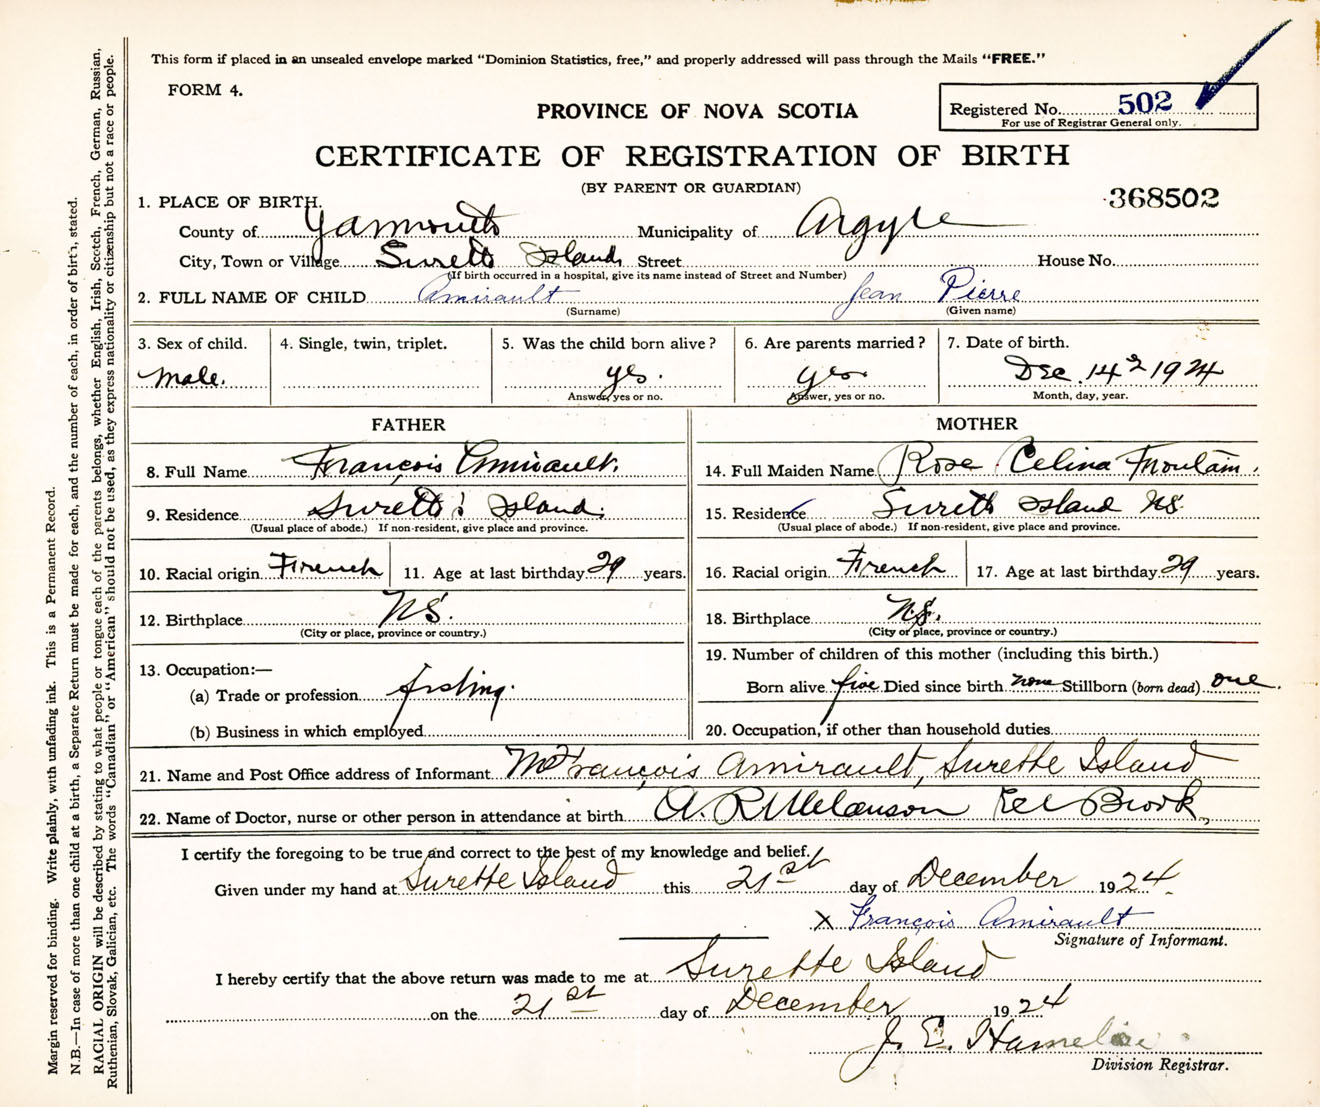 This form if placed in an unsealed envelope marked "Dominion Statistics, free," and properly addressed will pass through the Mails "FREE."
FORM 4.
PROVINCE OF NOVA SCOTIA
Registered No. 502
For use of Registrar General only.
CERTIFICATE OF REGISTRATION OF BIRTH
(BY PARENT OR GUARDIAN)
368502
1. PLACE OF BIRTH.
County of Yarmouth Municipality of Argyle
City, Town or Village Surette Island Street House No.
(If birth occurred in a hospital, give its name instead of Street and Number)
2. FULL NAME OF CHILD Amirault Jean Pierre
(Surname) (Given name)
3. Sex of child. 4. Single, twin, triplet. 5. Was the child born alive? 6. Are parents married? 7. Date of birth.
Male. yes. yes. Dec. 14 1924
Answer, yes or no. Answer, yes or no. Month, day, year.
FATHER MOTHER
8. Full Name François Amirault. 14. Full Maiden Name Rose Celina
9. Residence Surette's Island. 15. Residence Surette Island NS.
(Usual place of abode.) If non-resident, give place and province. (Usual place of abode.) If non-resident, give place and province.
10. Racial origin French 11. Age at last birthday 29 years. 16. Racial origin French 17. Age at last birthday 29 years.
12. Birthplace NS. 18. Birthplace N.S.
(City or place, province or country.) (City or place, province or country.)
13. Occupation:— 19. Number of children of this mother (including this birth.)
(a) Trade or profession fishing. Born alive five Died since birth none Stillborn (born dead) one.
(b) Business in which employed 20. Occupation, if other than household duties
21. Name and Post Office address of Informant François Amirault, Surette Island
22. Name of Doctor, nurse or other person in attendance at birth A. R. Melanson Eel Brook.
I certify the foregoing to be true and correct to the best of my knowledge and belief.
Given under my hand at Surette Island this 21st day of December 1924.
X François Amirault
Signature of Informant.
I hereby certify that the above return was made to me at Surette Island
on the 21st day of December 1924
J. E. Hameline
Division Registrar.
Margin reserved for binding. Write plainly, with unfading ink. This is a Permanent Record.
N.B.—In case of more than one child at a birth, a Separate Return must be made for each, and the number of each, in order of birth, stated.
RACIAL ORIGIN will be described by stating to what people or tongue each of the parents belongs, whether English, Irish, Scotch, French, German, Russian,
Ruthenian, Slovak, Galician, etc. The words "Canadian" or "American" should not be used, as they express nationality or citizenship but not a race or people.